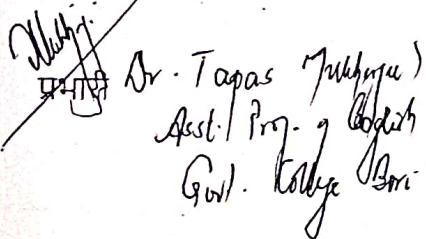 प्रभारी
Dr. Tapas Mukherjee)
Asst. Prof. of English
Govt. College Bori